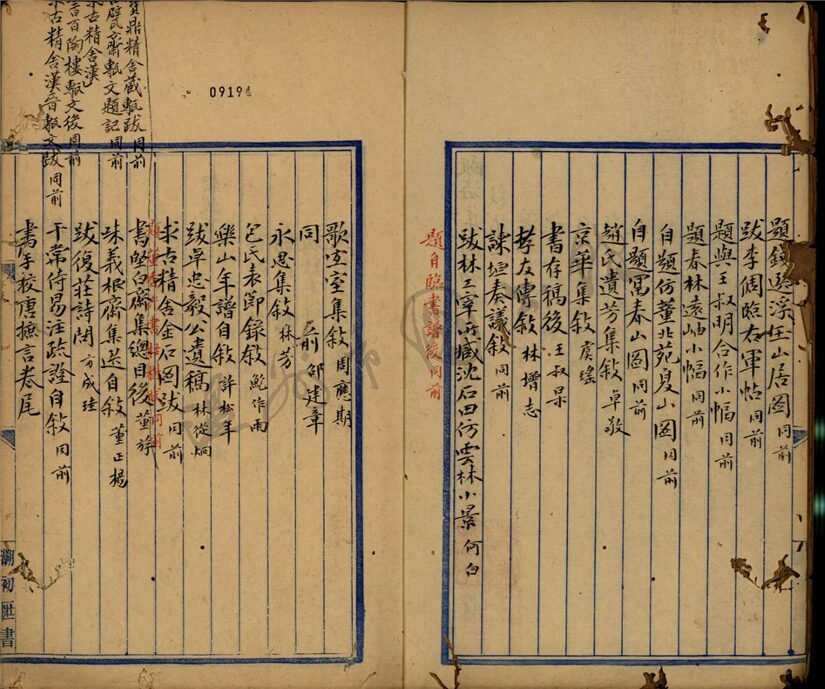 題錢舜溪玉山居圖 同前
跋李倜臨右軍帖 同前
題與王叔明合作小幅 同前
題春林遠岫小幅 同前
自題仿董北苑夏山圖 同前
自題寫春山圖 同前
趙氏遺芳集敘 卓敬
京華集敘 虞瑤
書存稿後 王叔杲
孝友傳敘 林增志
諫垣奏議敘 同前
跋林工宰所藏沈石田仿雲林小景 何白
題自臨書譜後 同前
歌宜室集敘 周應期
同前 邵建章
永思集敘 林芳
包氏表節錄敘 鮑作雨
樂山年譜自敘 許松年
跋卓忠毅公遺稿 林從炯
求古精舍金石圖跋 同前
書臨白齋集總目後 董斿
味義根齋集選自敘 董正揚
跋復莊詩問 方成珪
干常侍易注疏證自敘 同前
書手校唐摭言卷尾
寶鼎精舍藏甎跋 同前
甓齋甎文題記 同前
求古精舍漢
書百陶樓甎文後 同前
求古精舍漢晉甎文跋 同前
09194
瀕初匯書